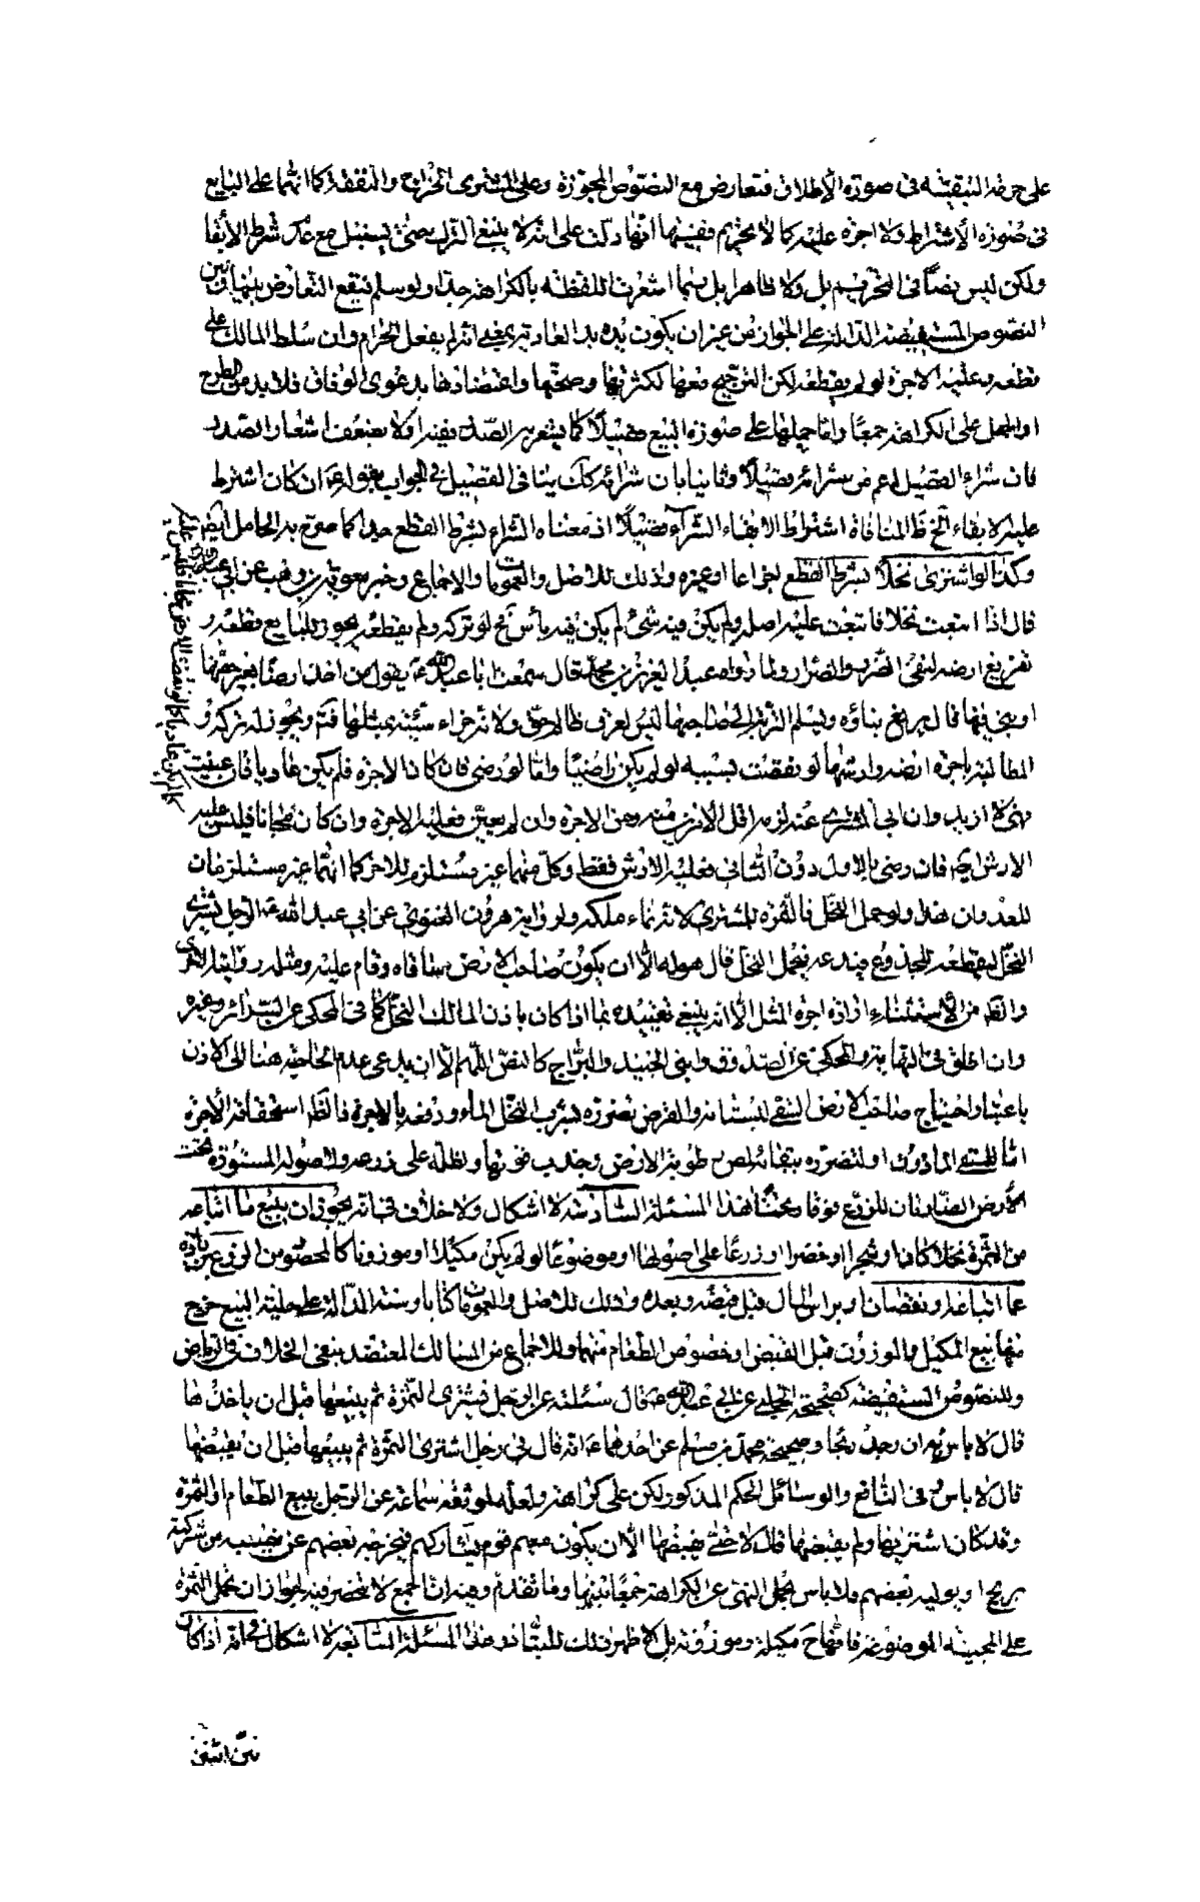 على حرمة التبقية في صورة الإطلاق فتعارض مع النصوص المجوزة وعلى المشتري الخراج والنفقة كما انهما على البايع
في صورة الأشتراط ولا اجرة عليه كما لا يحرم ففيها انها دلت على انه لا ينبغي الترك حتى يسنبل مع عدم شرط الأبقاء
ولكن ليس نصا في التحريم بل ولا ظاهرا بل ربما اشعرت اللفظة بالكراهة جدا ولو سلم فيقع التعارض بينها وبين
النصوص المستفيضة الدالة على الجواز من غير ان يكون يده يد العادية بمعنى انه لم يفعل الحرام وان سلط المالك على
قطعه وعليه الاجرة لو لم يقطعه لكن الترجيح معها لكثرتها وصحتها واعتضادها بدعوى الوفاق فلا بد من الطرح
او الحمل على الكراهة جمعا واما حملها على صورة البيع قصيلا كما يشعر به الصدر ففيه اولا بضعف اشعار الصدر
فان شراء القصيل اعم من شرائه قصيلا وثانيا بان شرائه كك ينافي التفصيل في الجواب بقوله ان كان اشترط
عليه الابقاء الخ لمنافاة اشتراط الابقاء الشراء قصيلا اذ معناه الشراء بشرط القطع حينه كما صرح به الحامل ايضا
وكذا لو اشترى نخلا بشرط القطع اجزاعا او غيره وذلك للاصل والعمومات والاجماع وخبر معوية بن وهب عن ابي عبد الله
قال اذا ابتعت نخلا فابتعت عليه اصله ولم يكن فيه شيء لم يكن فيه بأس نعم لو تركه ولم يقطعه يجوز للبايع قطعه و
تفريغ ارضه لنفي الضرر والضرار ولما رواه عبد العزيز بن محمد قال سمعت ابا عبد الله ع يقول من اخذ ارضا بغير حقها
او بنى فيها قال يرفع بناؤه ويسلم التربة الى صاحبها ليس لعرق ظالم حق ولانه جزاء سيئة بمثلها فتم ويجوز له تركه و
المطالبة باجرة ارضه وارشها لو نقصت بسببه لو لم يكن راضيا واما لو رضي فان كان بالاجرة فلم يكن عاديا فان عينت
فهي لا ازيد وان ابى المشتري عند لزمه اقل الأمرين منه ومن الاجرة وان لم يعين فعليه الاجرة وان كان مجانا فليس عليه
الارش ايضا فان رضي بالاول دون الثاني فعليه الارش فقط وكل منهما غير مستلزم للاخر كما انهما غير مستلزمان
للعدوان هذا ولو حمل النخل فالثمرة للمشتري لانه نماء ملكه ولرواية هرون الغنوي عن ابي عبد الله ع الرجل يشتري
النخل ليقطعه للجذوع فيدعه فيحمل النخل قال هو له الا ان يكون صاحب الارض سقاه وقام عليه ومثله رواية اخرى
والظ من الأستثناء ارادة اجرة المثل الا انه ينبغي تقييده بما اذا كان باذن المالك النخل كما في المحكي عن السرائر وغيره
وان اطلق في النهاية والمحكي عن الصدوق وابني الجنيد والبراج كالنص اللهم الا ان يدعى عدم الحاجة هنا الى الاذن
باعتبار احتياج صاحب الارض السقي لبستانه والفرض تضرره بشرب النخل الماء ورفعه بالاجرة فالظ استحقاقه الأجرة
اما للسقي الماذون او لتضرره ببقائه لمص رطوبة الارض وجذب قوتها وظله على زرعه واصوله المستورة تحت
الأرض الضارتان للزرع فوقا وتحتا هذا المسئلة السادسة لا اشكال ولا خلاف في انه يجوز ان يبيع ما ابتاعه
من الثمرة نخلا كان او شجرا او خضرا او زرعا على اصولها او موضوعا لو لم يكن مكيلا او موزونا كالمحصود من الزرع بزيادة
عما ابتاعه او نقصان او براس المال قبل قبضه وبعده وذلك للاصل والعمومات كتابا وسنة الدالة على حلية البيع خرج
منها بيع المكيل والموزون قبل القبض او خصوص الطعام منهما وللاجماع من المسالك المعتضد بنفي الخلاف في الرياض
وللنصوص المستفيضة كصحيحة الحلبي عن ابي عبد الله ع قال سئلته عن الرجل يشتري الثمرة ثم يبيعها قبل ان ياخذها
قال لا باس به ان وجد ربحا وصحيحة محمد بن مسلم عن احدهما ع انه قال في رجل اشترى الثمرة ثم يبيعها قبل ان يقبضها
قال لا باس وفي النافع والوسائل الحكم المذكور لكن على كراهة ولعله لموثقة سماعة عن الرجل يبيع الطعام او الثمرة
وقد كان اشتريها ولم يقبضها قال لا حتى يقبضها الا ان يكون معهم قوم يشاركهم فيخرجه بعضهم عن نصيبه من شركته
بربح او يوليه بعضهم فلا باس بحمل النهي عن الكراهة جمعا بينها وما تقدم وفيه ان الجمع لا ينحصر فيه لجواز ان يحمل الثمرة
على المجنية الموضوعة فانها ح مكيلة وموزونة بل الاظهر ذلك للتبادر هذا المسئلة السابعة لا اشكال في انه اذا كان
بين اثنين